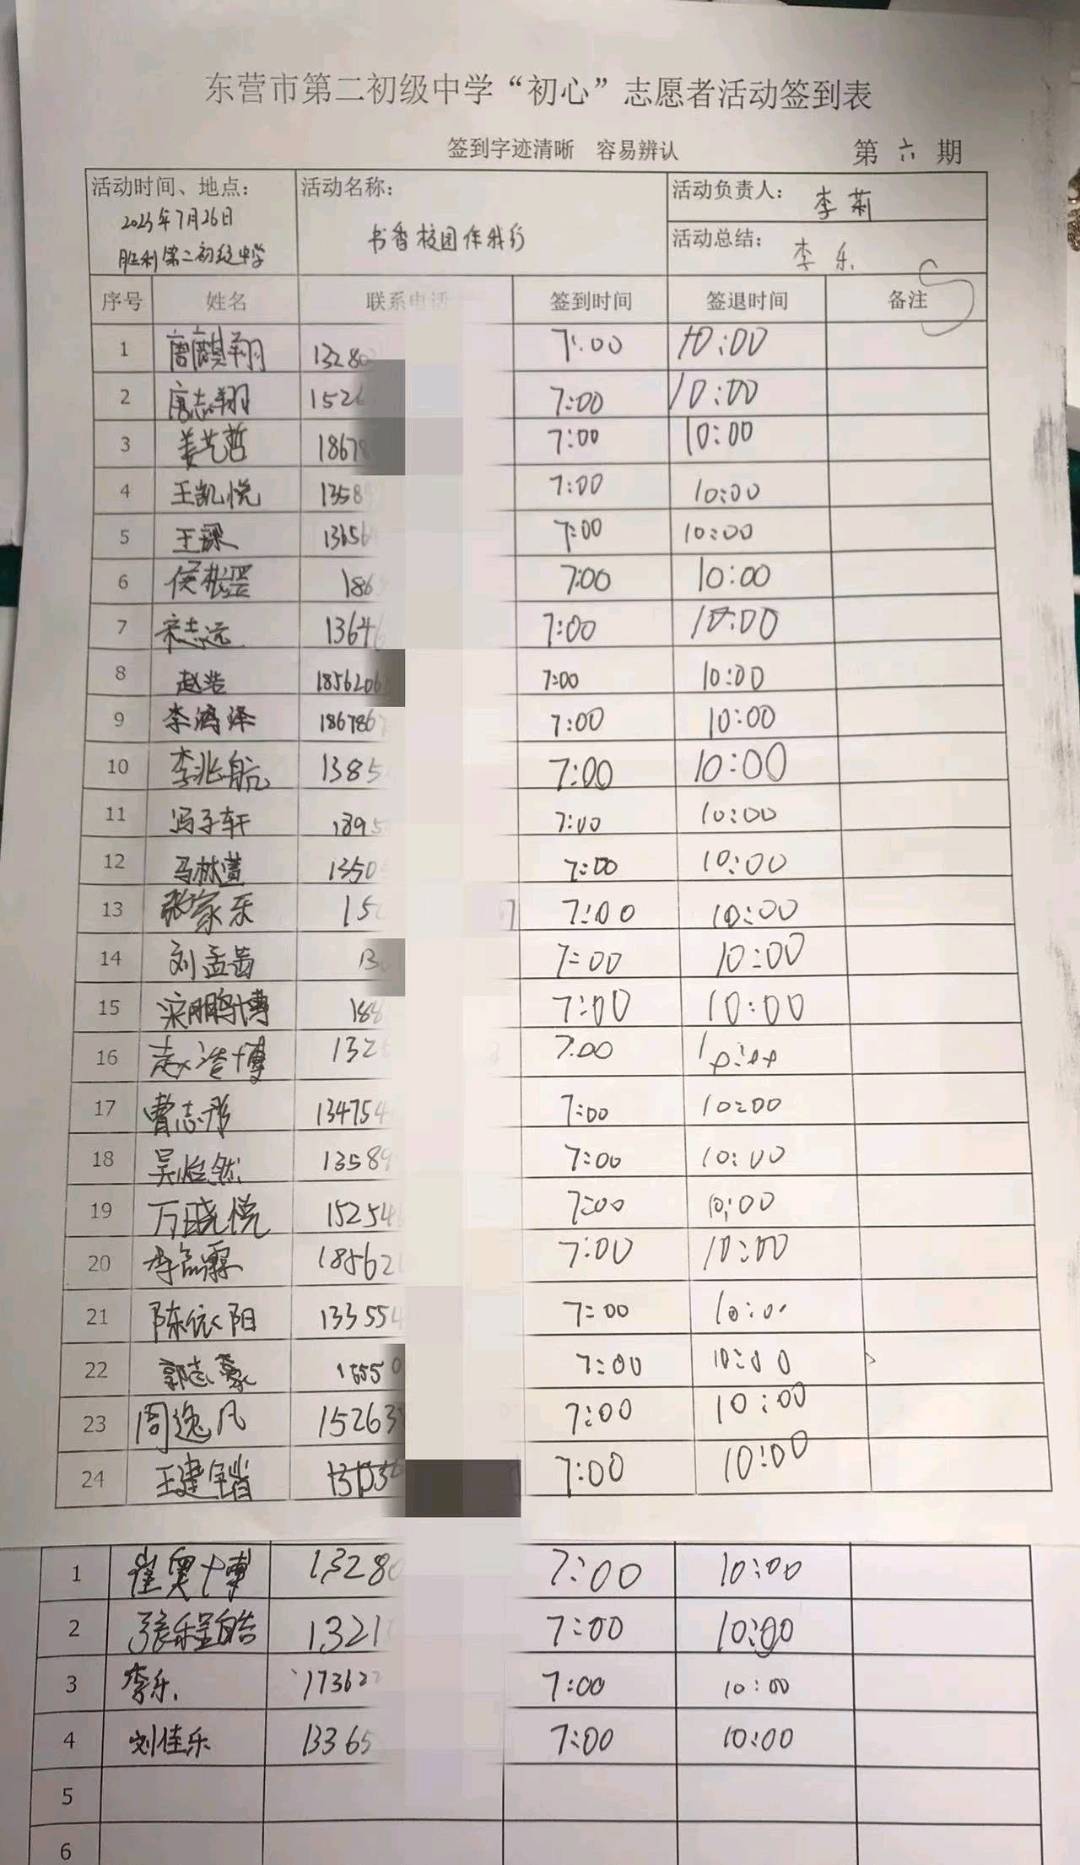 东营市第二初级中学“初心”志愿者活动签到表
签到字迹清晰 容易辨认 第 六 期
活动时间、地点: 活动名称: 活动负责人: 李莉
2023年7月26日 书香校园伴我行
胜利第二初级中学 活动总结: 李乐
序号 姓名 联系电话 签到时间 签退时间 备注
1 唐麒翔 13280 7:00 10:00
2 唐志翔 1526 7:00 10:00
3 姜艺哲 1867 7:00 10:00
4 王凯悦 1358 7:00 10:00
5 王 1365 7:00 10:00
6 186 7:00 10:00
7 宋志远 1364 7:00 10:00
8 赵浩 1856206 7:00 10:00
9 李鸿泽 186786 7:00 10:00
10 李兆航 1385 7:00 10:00
11 冯子轩 1895 7:00 10:00
12 马林萱 1350 7:00 10:00
13 张家乐 15 7:00 10:00
14 刘孟茜 7:00 10:00
15 梁鹏博 188 7:00 10:00
16 赵浩博 132 7:00
17 曹志彤 134754 7:00 10:00
18 吴怡然 13589 7:00 10:00
19 万晓悦 15254 7:00 10:00
20 18562 7:00 10:00
21 陈依阳 133554 7:00 10:00
22 郭志豪 15550 7:00 10:00
23 周逸凡 15263 7:00 10:00
24 王建锴 7:00 10:00
1 崔奥博 13280 7:00 10:00
2 张程皓 1321 7:00 10:00
3 李乐 17362 7:00 10:00
4 刘佳乐 13365 7:00 10:00
5
6